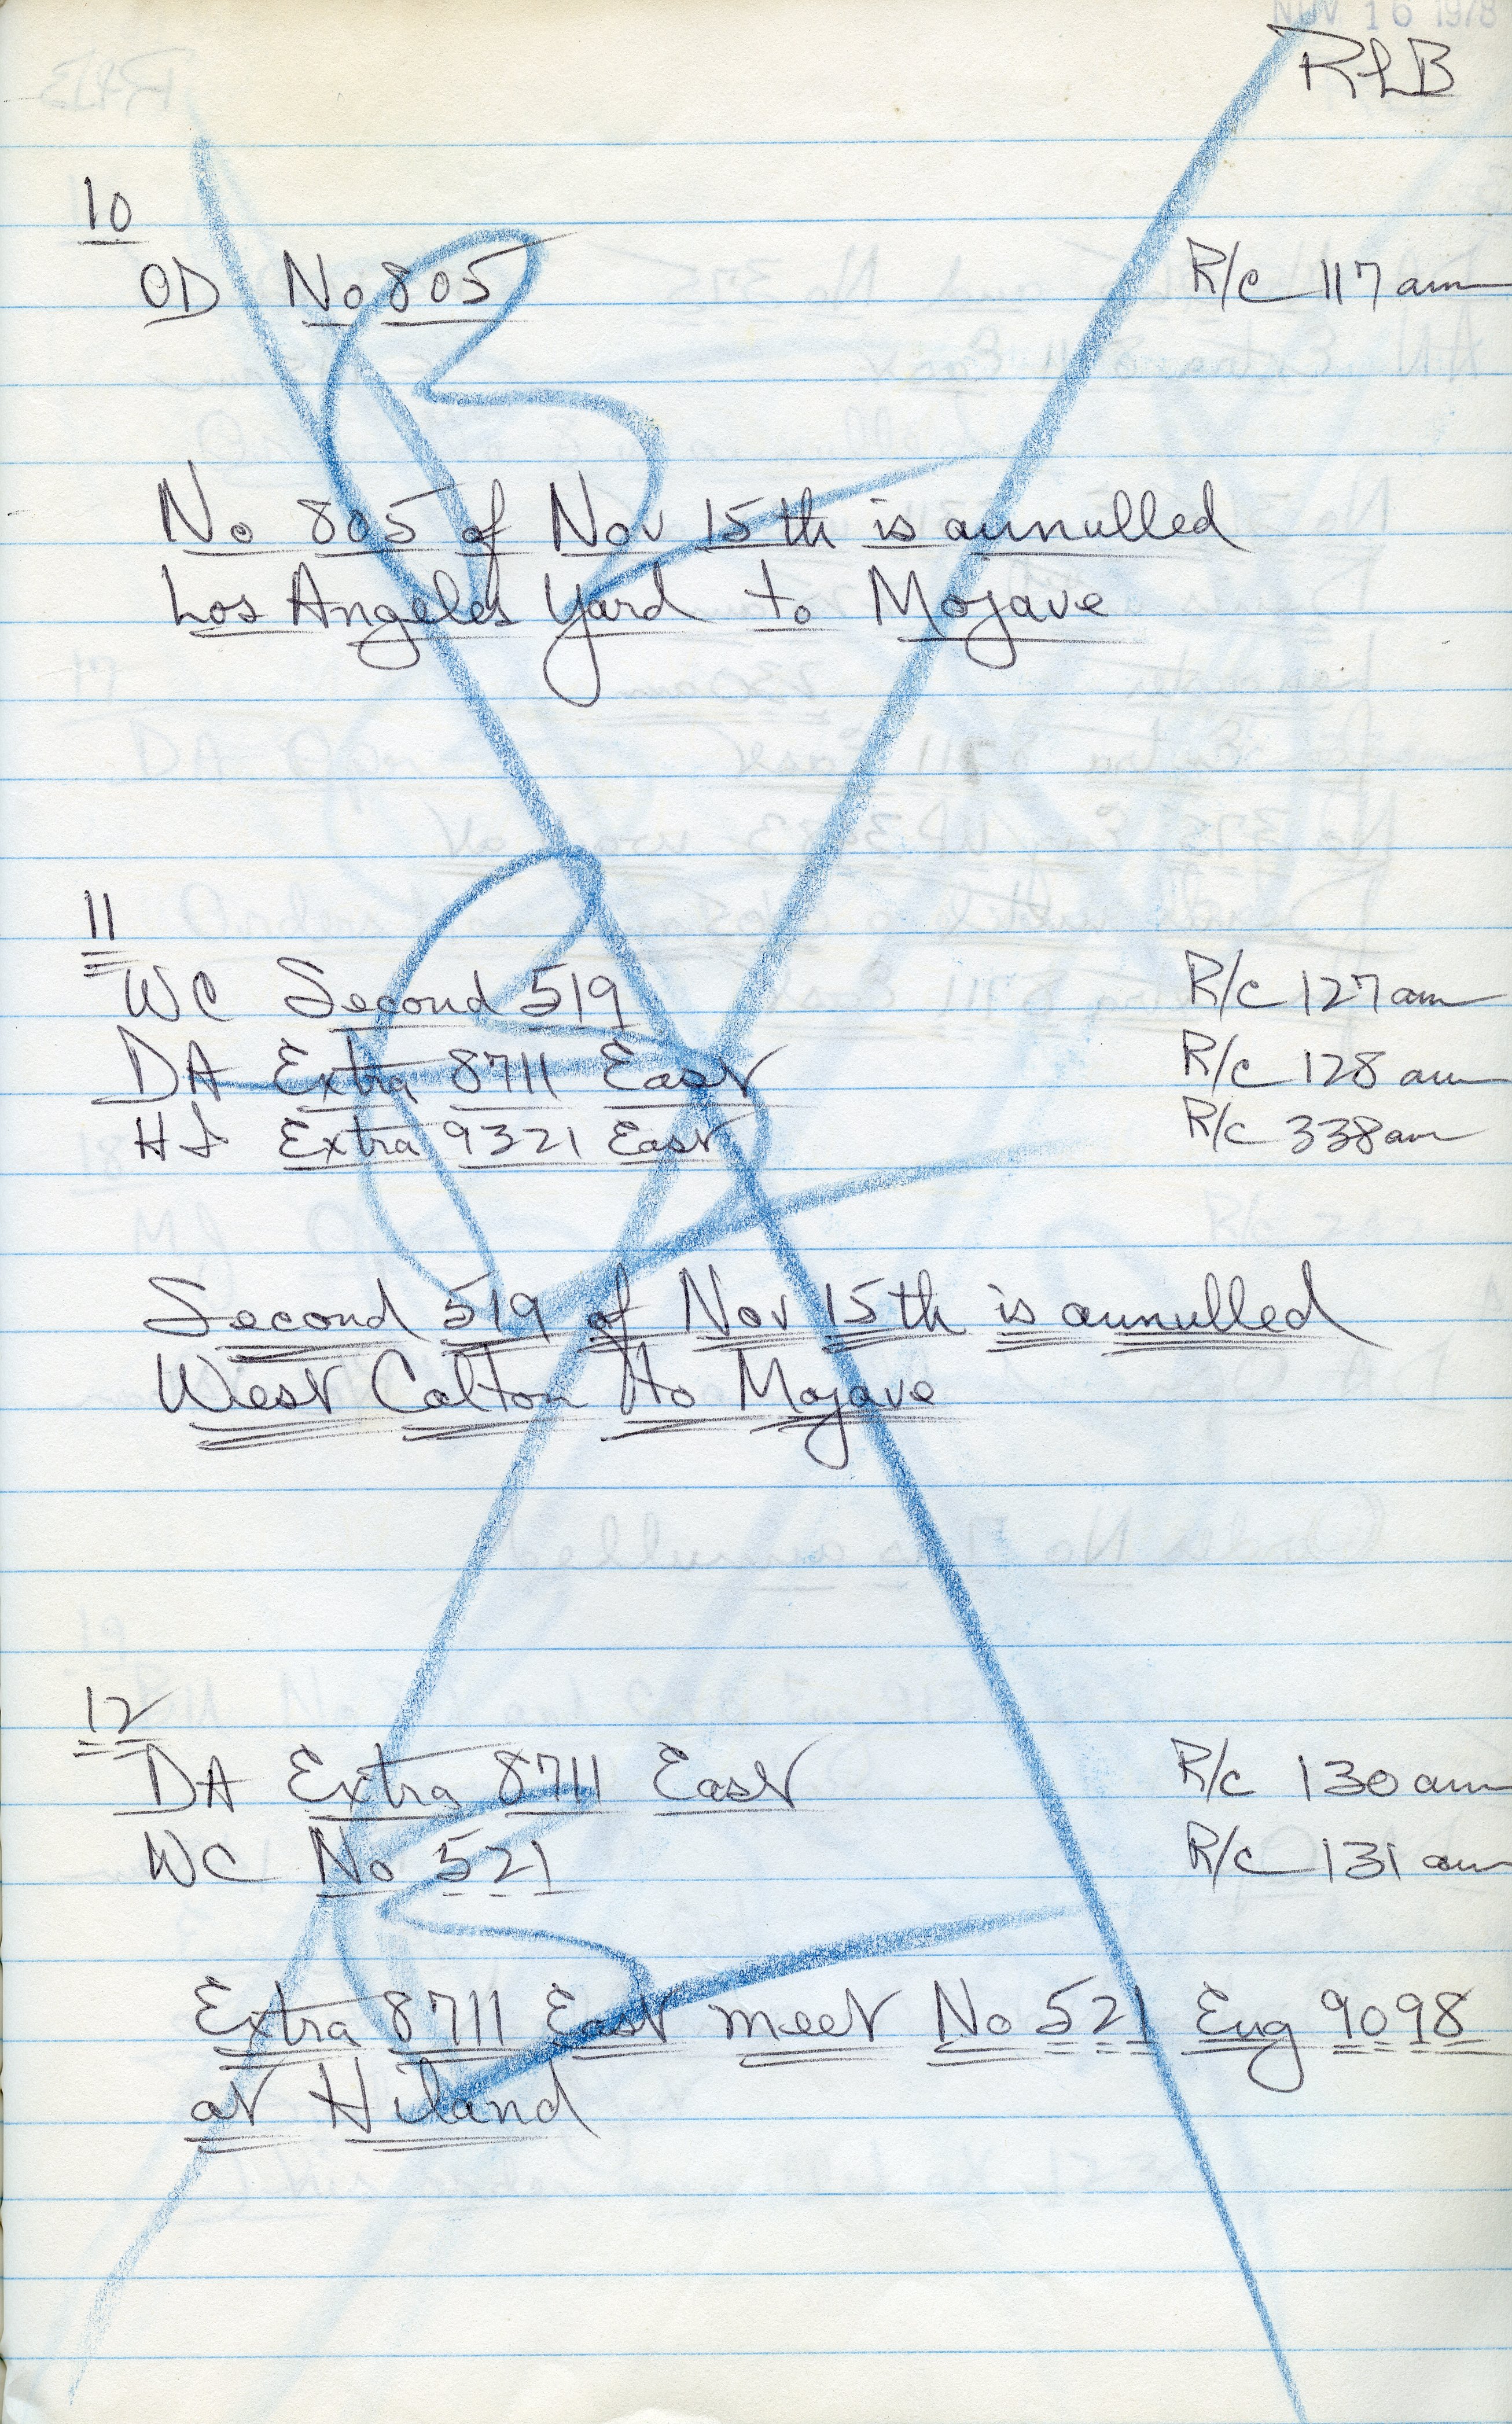 NOV 16 1978
RLB
10
OD No 805 R/c 117am
No 805 of Nov 15th is annulled
Los Angeles Yard to Mojave
11
WC Second 519 R/c 127am
DA Extra 8711 East R/c 128am
Extra 9321 East R/c 338am
Second 519 of Nov 15th is annulled
West Colton to Mojave
12
DA Extra 8711 East R/c 130am
WC No 521 R/c 131am
Extra 8711 East meet No 521 Eng 9098
at Hiland